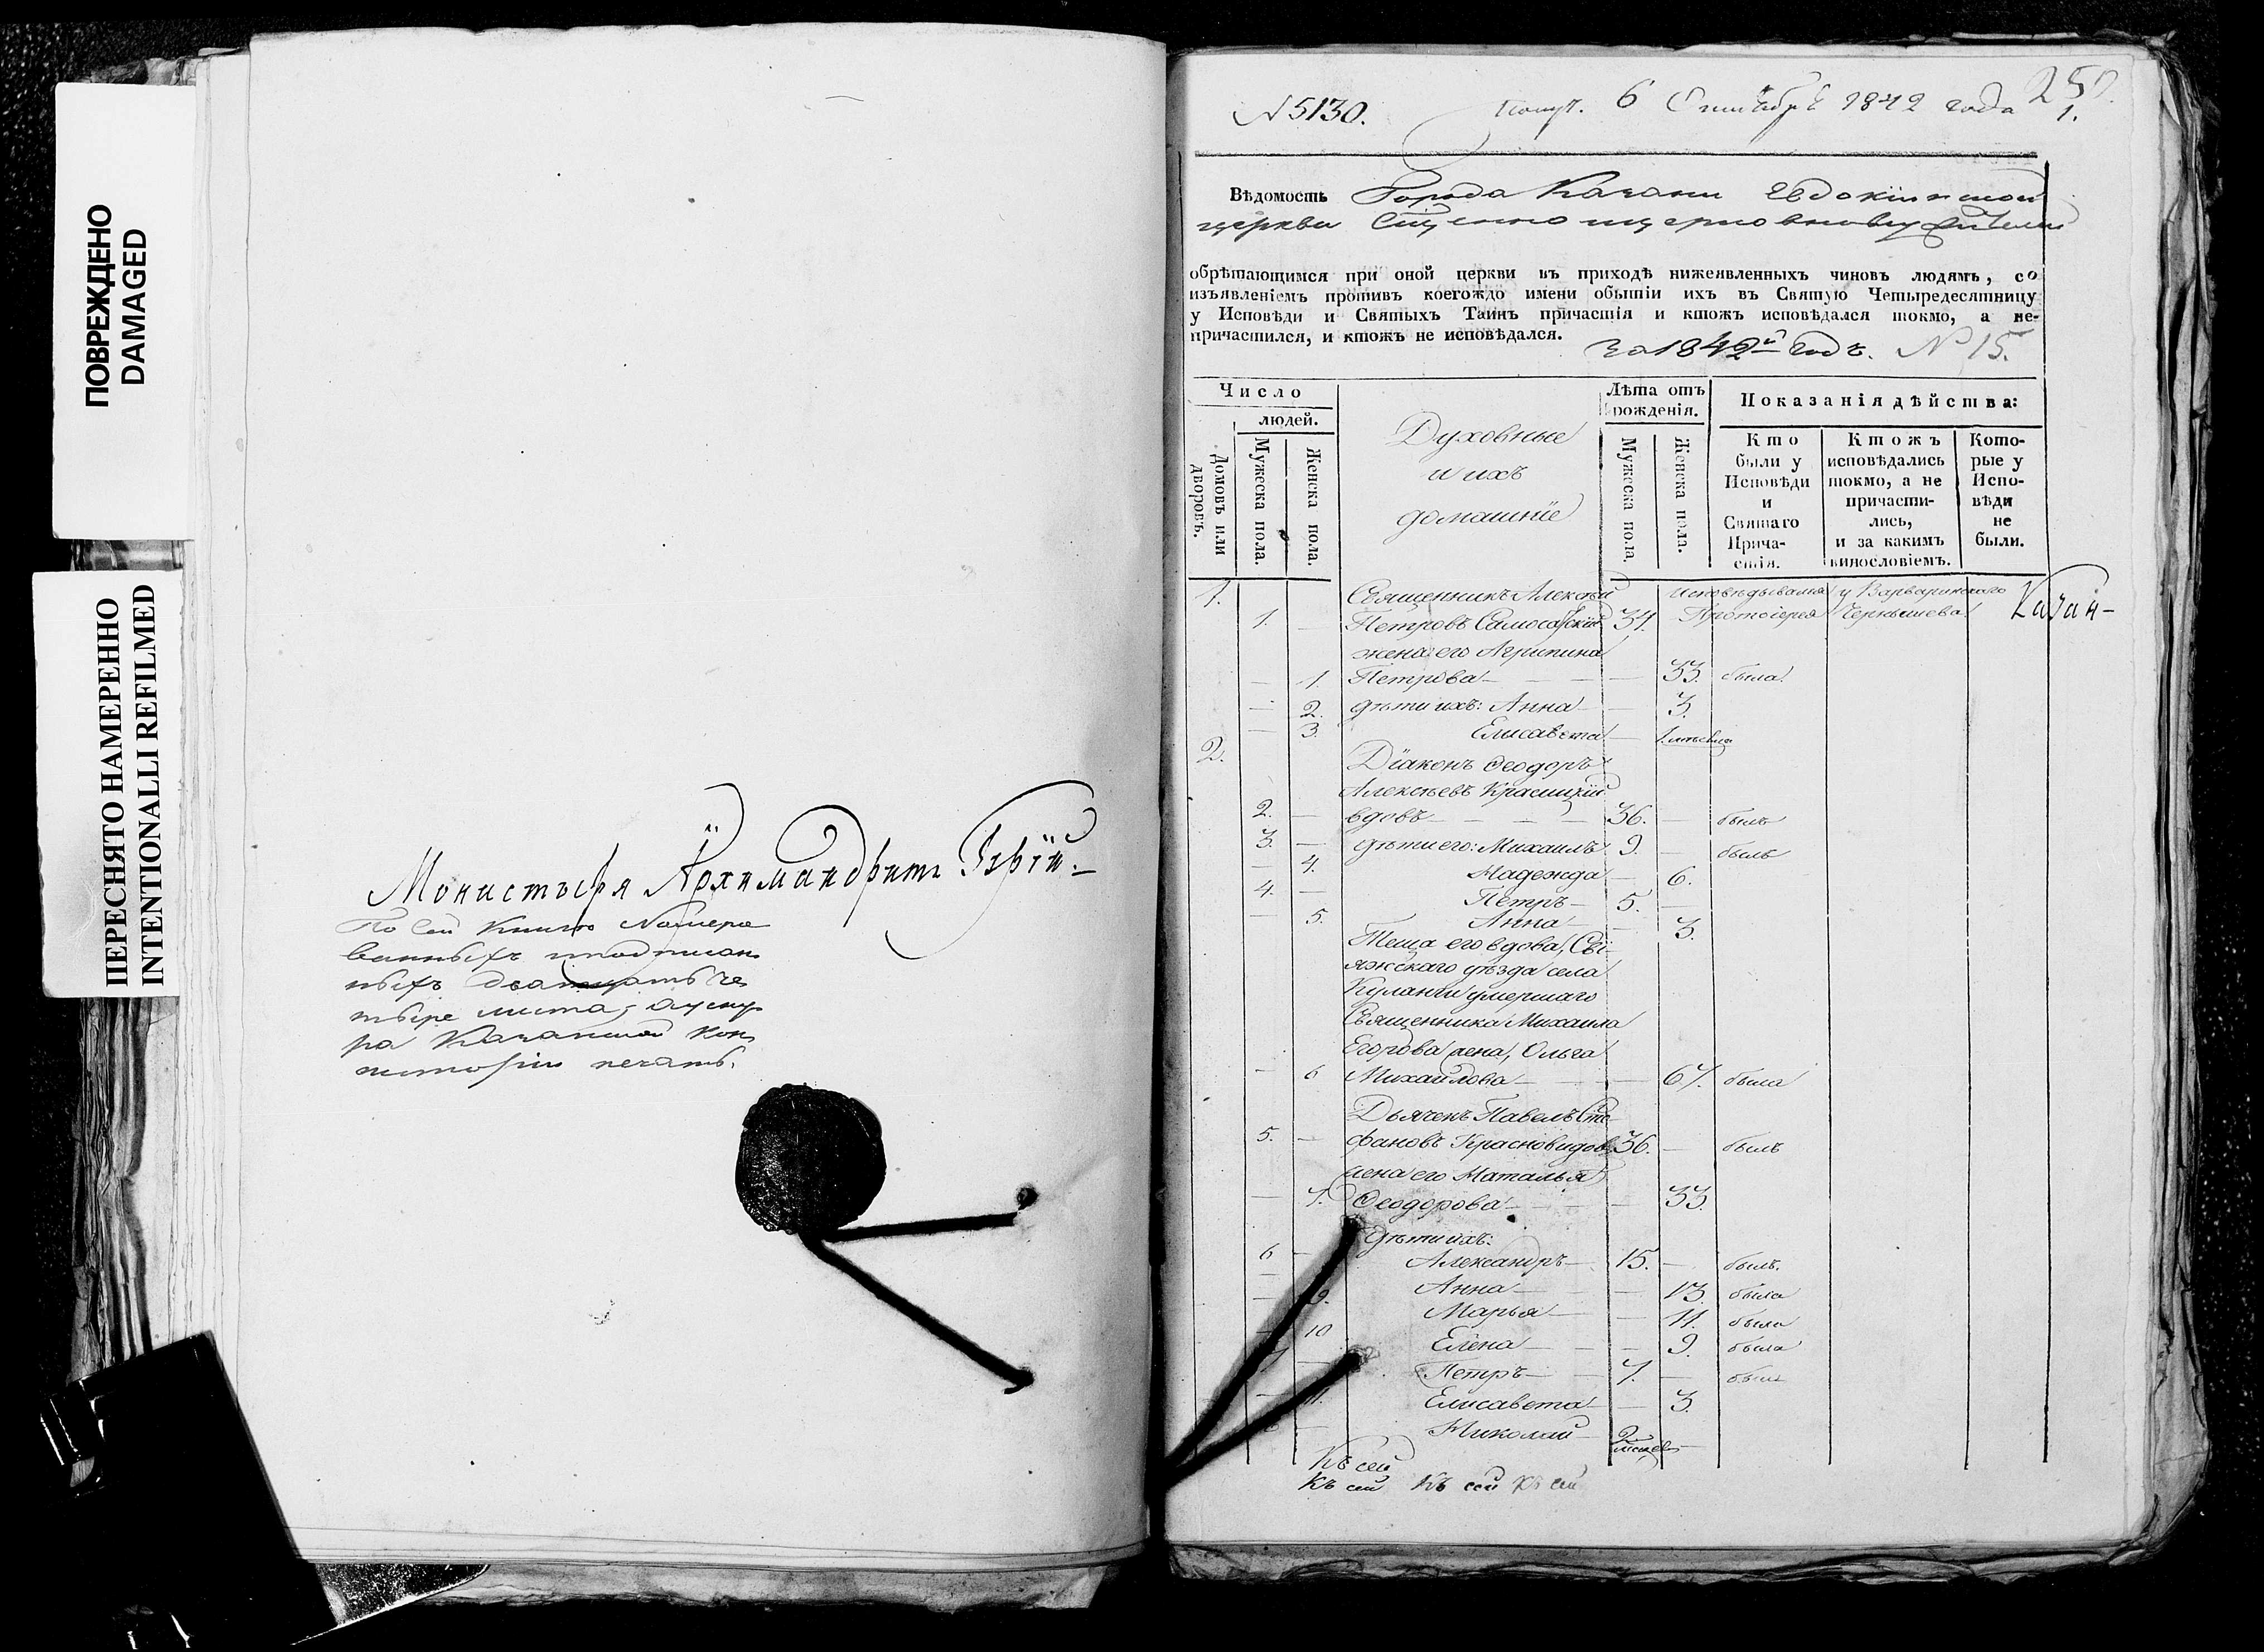 ПОВРЕЖДЕНО
DAMAGED
ПЕРЕСНЯТО НАМЕРЕННО
INTENTIONALLI REFILMED
Монастыря Архимандритъ Гурій.
По сей книгѣ Номеро
ванныхъ
ныхъ двадцать че
тыре листа,
ра Казанской Кон
печать.
N 5130.
Получ. 6 Октября 1842 года
250.
1.
Вѣдомость Города Казани Евдокіинской
церкви
обрѣтающимся при оной церкви въ приходѣ нижеявленныхъ чиновъ людямъ, со
изъявленіемъ противъ коегождо имени обытіи ихъ въ Святую Четыредесятницу
у Исповѣди и Святыхъ Таинъ причастія и ктожъ исповѣдался токмо, а не-
причастился, и ктожъ не исповѣдался.
За 1842й годъ. N 15.
Число
людей.
Домовъ или дворовъ.
Мужеска пола.
Женска пола.
Духовные
и ихъ
домашніе
Лѣта отъ
рожденія.
Мужеска пола.
Женска пола.
Показанія дѣйства:
Кто
были у
Исповѣди
и
Святаго
Прича-
стія.
Ктожъ
исповѣдались
токмо, а не
причасти-
лись,
и за какимъ
винословіемъ.
Кото-
рые у
Испо-
вѣди
не
были.
1. Священникъ Алексѣй Исповѣдывался у Варваринскаго
1. — Петровъ 34. Протоіерея Чернышева Казан-
жена его Агрипина
— 1. Петрова — — 33. была
— 2. дѣти ихъ: Анна — — 3.
— 3. Елисавета — 1.
2. Діаконъ Ѳеодоръ
Алексѣевъ
2. — вдовъ — 36. — былъ
3. — дѣти его: Михаилъ 9. — былъ
— 4. Надежда — 6.
4. — Петръ — 5. —
— 5. Анна — — 3.
Теща его вдова, Сві-
яжскаго уѣзда села
Куланги умершаго
Священника Михаила
Егорова жена, Ольга
— 6 Михайлова — — 67. была
Дьячекъ Павелъ Сте-
5. — фановъ Красновидовъ 36. — былъ
жена его Наталья
— 7. Ѳеодорова — — 33.
дѣти ихъ:
6 — Александръ — 15. — былъ.
— Анна — — 13. была
— 9. Марья — — 11. была
— 10 Елена — — 9. была
— Петръ — 7. — былъ
— 11. Елисавета — — 3.
— Николай — 2 —
Къ сей
Къ сей Къ сей Къ сей